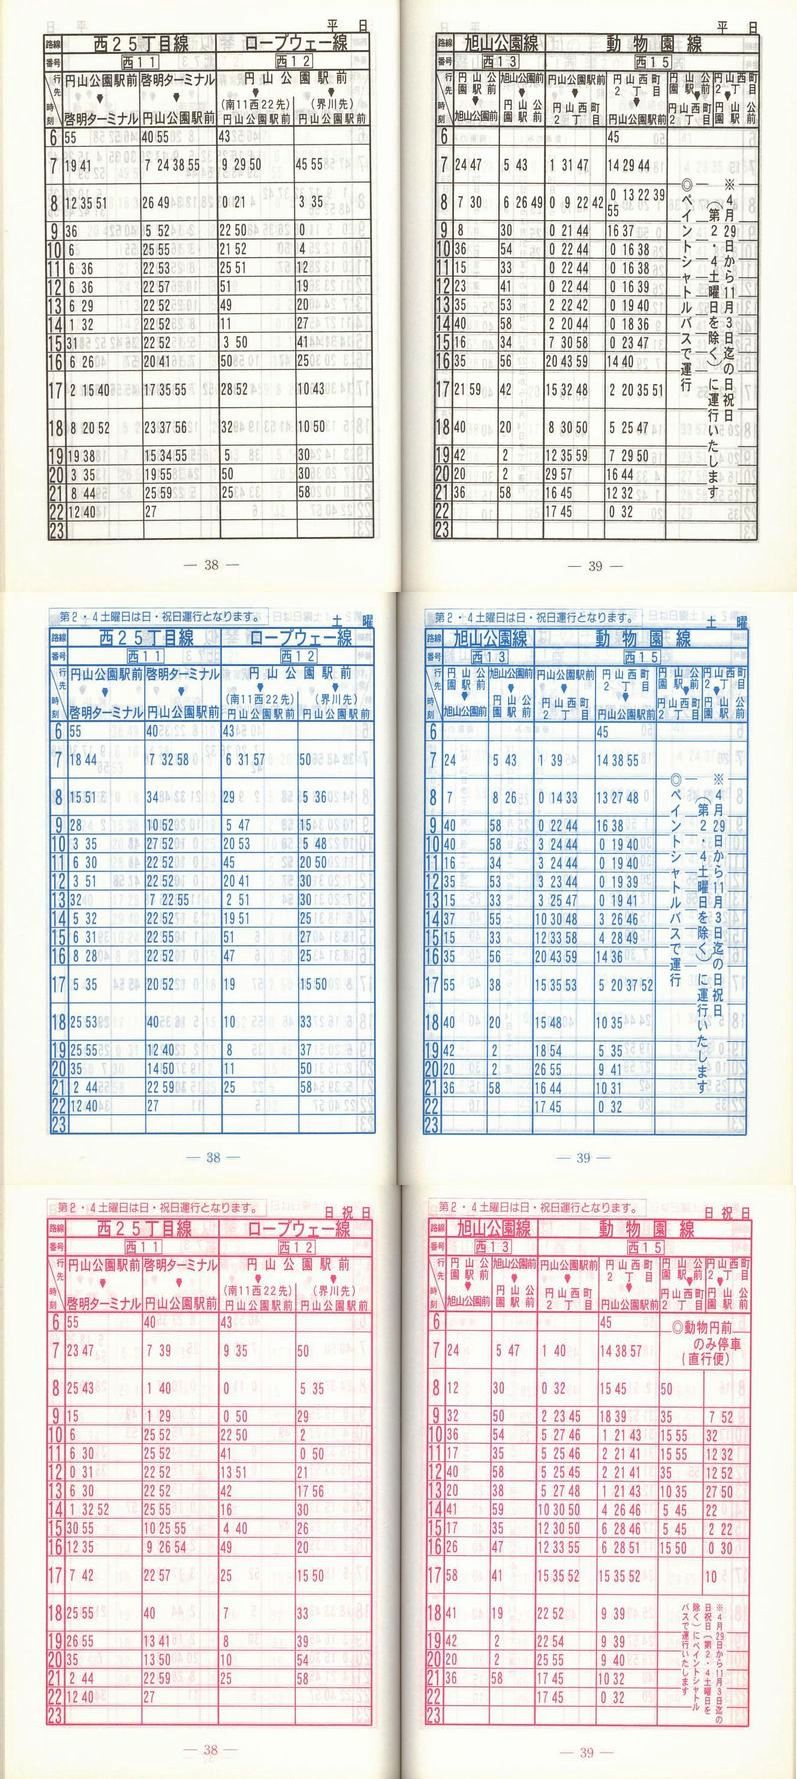 平 日
路線 西25丁目線 ロープウェー線
番号 西11 西12
行先 円山公園駅前 啓明ターミナル 円山公園駅前
(南11西22先) (界川先)
時刻 啓明ターミナル 円山公園駅前 円山公園駅前 円山公園駅前
6 55 40 55 43
7 19 41 7 24 38 55 9 29 50 45 55
8 12 35 51 26 49 0 21 3 35
9 36 5 52 22 50 0
10 6 25 55 21 52 4
11 6 36 22 53 25 51 12
12 6 36 22 57 51 19
13 6 29 22 52 49 20
14 1 32 22 52 11 27
15 31 22 52 3 50 41
16 6 26 20 41 50 25
17 2 15 40 17 35 55 28 52 10 43
18 8 20 52 23 37 56 32 10 50
19 19 38 15 34 55 5 30
20 3 35 19 55 50 30
21 8 44 25 59 25 58
22 12 40 27
23
― 38 ―
平 日
路線 旭山公園線 動物園線
番号 西13 西15
行先 円山公園駅前 旭山公園前 円山公園駅前 円山西町2丁目 円山公園駅前 円山西町2丁目
時刻 旭山公園前 円山公園駅前 円山西町2丁目 円山公園駅前 円山西町2丁目 円山公園駅前
6 45
7 24 47 5 43 1 31 47 14 29 44
8 7 30 6 26 49 0 9 22 42 0 13 22 39
55
9 8 30 0 21 44 16 37
10 36 54 0 22 44 0 16 38
11 15 33 0 22 44 0 16 38
12 23 41 0 22 44 0 16 39
13 35 53 2 22 42 0 19 40
14 40 58 2 20 44 0 18 36
15 16 34 7 30 58 0 23 47
16 35 56 20 43 59 14 40
17 21 59 42 15 32 48 2 20 35 51
18 40 20 8 30 50 5 25 47
19 42 2 12 35 59 7 29 50
20 20 2 29 57 16 44
21 36 58 16 45 12 32
22 17 45 0 32
23
※4月29日から11月3日迄の日祝日
(第2・4土曜日を除く)に運行いたします
◎ペイントシャトルバスで運行
― 39 ―
第2・4土曜日は日・祝日運行となります。
土 曜
路線 西25丁目線 ロープウェー線
番号 西11 西12
行先 円山公園駅前 啓明ターミナル 円山公園駅前
(南11西22先) (界川先)
時刻 啓明ターミナル 円山公園駅前 円山公園駅前 円山公園駅前
6 55 40 43
7 18 44 7 32 58 6 31 57 50
8 15 51 34 29 5 36
9 28 10 52 5 47 15
10 3 35 27 52 20 53 5 48
11 6 30 22 52 45 20 50
12 3 51 22 52 20 41 30
13 32 7 22 55 2 51 30
14 5 32 22 52 19 51 25
15 6 31 22 55 51 27
16 8 28 22 52 47 25
17 5 35 20 52 19 15 50
18 25 53 40 10 33
19 25 55 12 40 8 37
20 35 14 50 11 50
21 2 44 22 59 25 58
22 12 40 27
23
― 38 ―
第2・4土曜日は日・祝日運行となります。
土 曜
路線 旭山公園線 動物園線
番号 西13 西15
行先 円山公園駅前 旭山公園前 円山公園駅前 円山西町2丁目 円山公園駅前 円山西町2丁目
時刻 旭山公園前 円山公園駅前 円山西町2丁目 円山公園駅前 円山西町2丁目 円山公園駅前
6 45
7 24 5 43 1 39 14 38 55
8 7 8 26 0 14 33 13 27 48
9 40 58 0 22 44 16 38
10 40 58 3 24 44 0 19 40
11 16 34 3 24 44 0 19 40
12 35 53 3 23 44 0 19 39
13 15 33 3 25 47 0 19 41
14 37 55 10 30 48 3 26 46
15 15 33 12 33 58 4 28 49
16 35 56 20 43 59 14 36
17 55 38 15 35 53 5 20 37 52
18 40 20 15 48 10 35
19 42 2 18 54 5 35
20 20 2 26 55 9 41
21 36 58 16 44 10 31
22 17 45 0 32
23
※4月29日から11月3日迄の日祝日
(第2・4土曜日を除く)に運行いたします
◎ペイントシャトルバスで運行
― 39 ―
第2・4土曜日は日・祝日運行となります。
日 祝 日
路線 西25丁目線 ロープウェー線
番号 西11 西12
行先 円山公園駅前 啓明ターミナル 円山公園駅前
(南11西22先) (界川先)
時刻 啓明ターミナル 円山公園駅前 円山公園駅前 円山公園駅前
6 55 40 43
7 23 47 7 39 9 35 50
8 25 43 1 40 0 5 35
9 15 1 29 0 50 29
10 6 25 52 22 50 2
11 6 30 25 52 41 0 50
12 0 31 22 52 13 51 21
13 6 30 22 52 42 17 56
14 1 32 52 25 55 16 30
15 30 55 10 25 55 4 40 26
16 12 35 9 26 54 49 20
17 7 42 22 57 25 15 50
18 25 55 40 7 33
19 26 55 13 41 8 39
20 35 13 50 10 54
21 2 44 22 59 25 58
22 12 40 27
23
― 38 ―
第2・4土曜日は日・祝日運行となります。
日 祝 日
路線 旭山公園線 動物園線
番号 西13 西15
行先 円山公園駅前 旭山公園前 円山公園駅前 円山西町2丁目 円山公園駅前 円山西町2丁目
時刻 旭山公園前 円山公園駅前 円山西町2丁目 円山公園駅前 円山西町2丁目 円山公園駅前
6 45
◎動物円前
のみ停車
(直行便)
7 24 5 47 1 40 14 38 57
8 12 30 0 32 15 45 50
9 32 50 2 23 45 18 39 35 7 52
10 36 54 5 27 46 1 21 43 15 55 32
11 17 35 5 25 46 2 21 41 15 55 12 32
12 40 58 5 25 45 2 21 41 35 12 52
13 20 38 5 27 48 1 21 43 10 35 27 50
14 41 59 10 30 50 4 26 46 5 45 22
15 17 35 12 30 50 6 28 46 5 45 2 22
16 26 47 12 33 55 6 28 51 15 50 0 30
17 58 41 15 35 52 15 35 52 10
18 41 19 22 52 9 39
19 42 2 22 54 9 39
20 20 2 25 55 9 40
21 36 58 17 45 10 32
22 17 45 0 32
23
※4月29日から11月3日迄の
日祝日(第2・4土曜日を
除く)にペイントシャトル
バスで運行いたします
― 39 ―